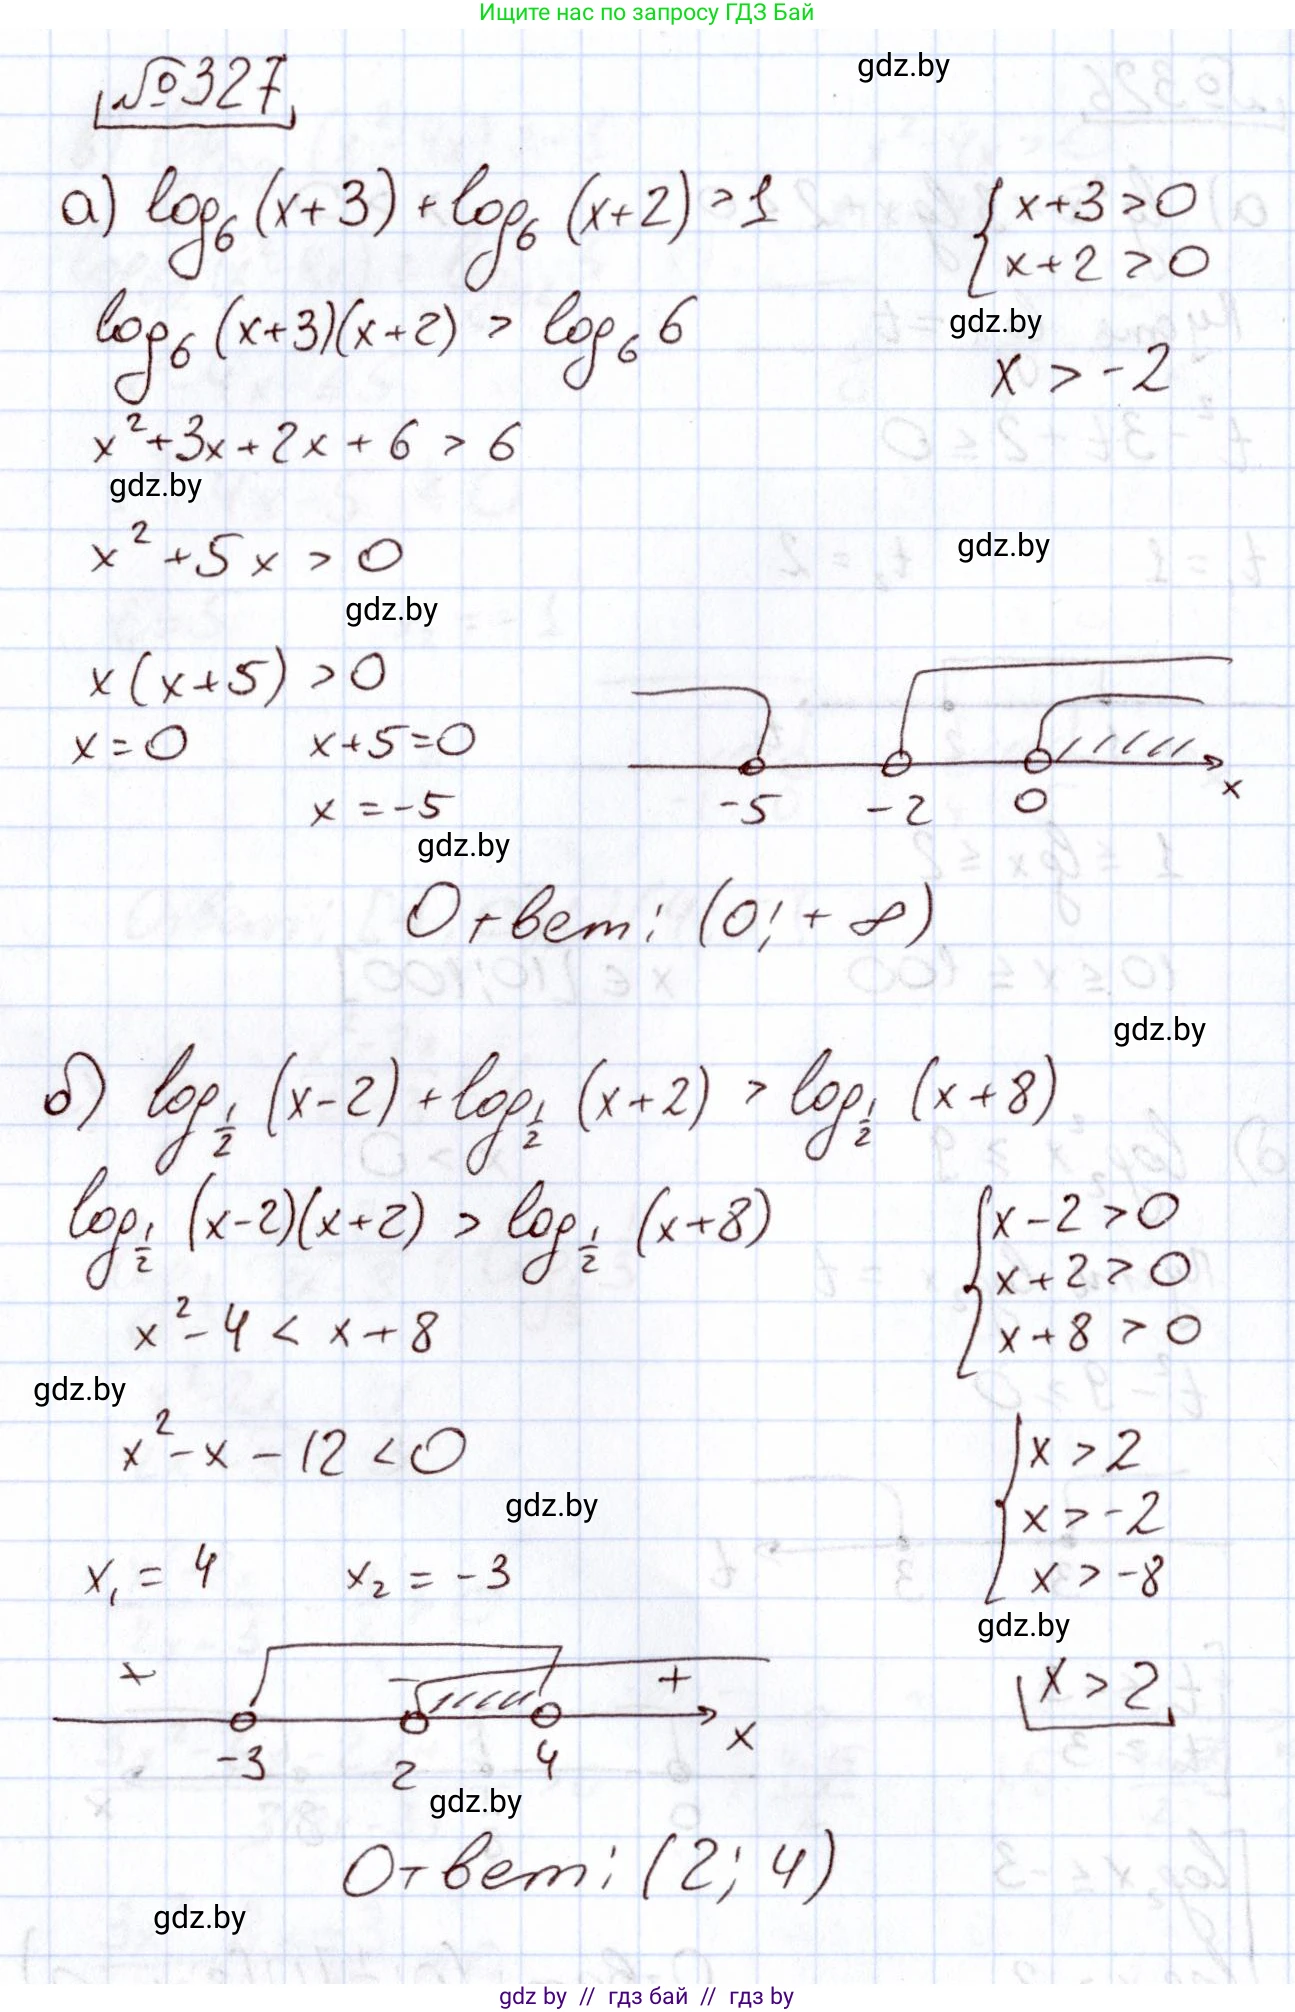 Ищите нас по запросу ГДЗ Бай
№327
gdz.by
а) log₆ (x+3) + log₆ (x+2) > 1
{ x+3 > 0
x+2 > 0
log₆ (x+3)(x+2) > log₆ 6
gdz.by
x > -2
x² + 3x + 2x + 6 > 6
gdz.by
x² + 5x > 0
gdz.by
gdz.by
x(x+5) > 0
x = 0 x+5=0
x = -5
-5 -2 0 x
gdz.by
Ответ: (0; +∞)
gdz.by
б) log_{1/2} (x-2) + log_{1/2} (x+2) > log_{1/2} (x+8)
log_{1/2} (x-2)(x+2) > log_{1/2} (x+8)
{ x-2 > 0
x+2 > 0
x+8 > 0
x² - 4 < x + 8
gdz.by
x² - x - 12 < 0
{ x > 2
x > -2
x > -8
gdz.by
x₁ = 4 x₂ = -3
gdz.by
x > 2
+ − +
-3 2 4 x
gdz.by
Ответ: (2; 4)
gdz.by
gdz by // гдз бай // гдз by